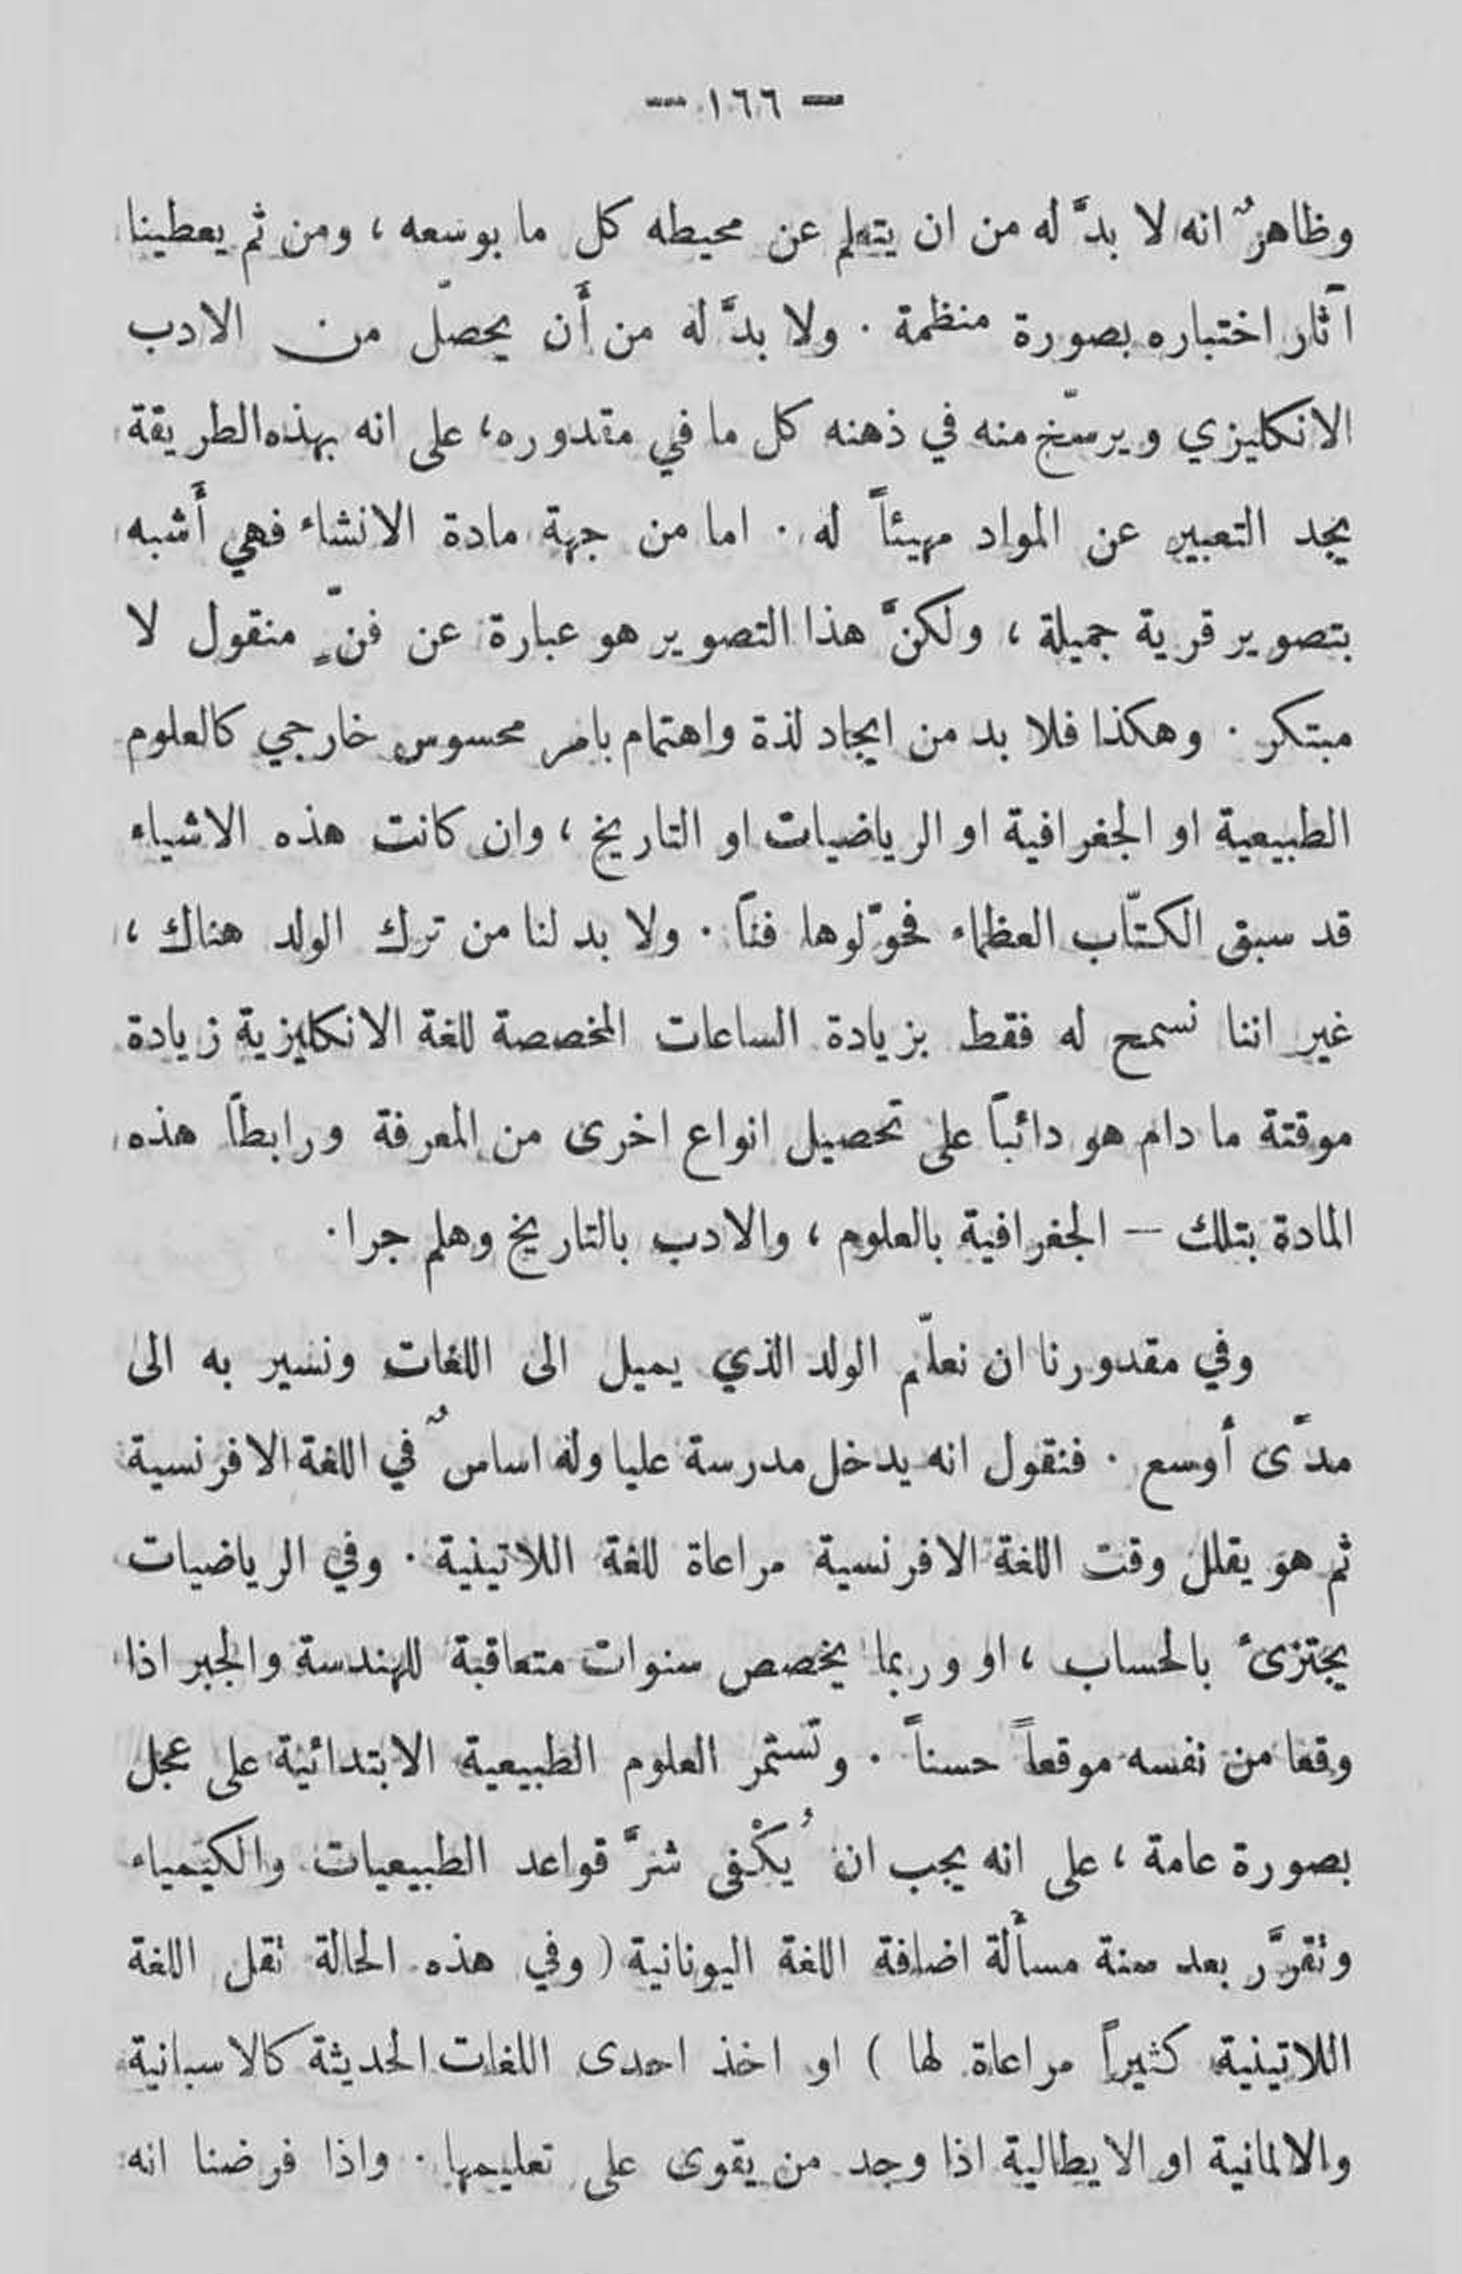 — ١٦٦ —
وظاهرٌ انه لا بدَّ له من ان يتعلم عن محيطه كل ما بوسعه ، ومن ثم يعطينا
آثار اختباره بصورة منظمة . ولا بدَّ له من أَن يحصّل من الادب
الانكليزي ويرسّخ منه في ذهنه كل ما في مقدوره ، على انه بهذه الطريقة
يجد التعبير عن المواد مهيئاً له . اما من جهة مادة الانشاء فهي أَشبه
بتصوير قرية جميلة ، ولكنَّ هذا التصوير هو عبارة عن فنٍّ منقول لا
مبتكر . وهكذا فلا بد من ايجاد لذة واهتمام بامر محسوس خارجي كالعلوم
الطبيعية او الجغرافية او الرياضيات او التاريخ ، وان كانت هذه الاشياء
قد سبق الكتّاب العظماء فحوّلوها فناً . ولا بد لنا من ترك الولد هناك ،
غير اننا نسمح له فقط بزيادة الساعات المخصصة للغة الانكليزية زيادة
موقتة ما دام هو دائباً على تحصيل انواع اخرى من المعرفة ورابطاً هذه
المادة بتلك — الجغرافية بالعلوم ، والادب بالتاريخ وهلم جرا .
وفي مقدورنا ان نعلّم الولد الذي يميل الى اللغات ونسير به الى
مدًى أوسع . فنقول انه يدخل مدرسة عليا وله اساسٌ في اللغة الافرنسية
ثم هو يقلل وقت اللغة الافرنسية مراعاة للغة اللاتينية . وفي الرياضيات
يجتزئ بالحساب ، او وربما يخصص سنوات متعاقبة للهندسة والجبر اذا
وقعا من نفسه موقعاً حسناً . وتستمر العلوم الطبيعية الابتدائية على عجل
بصورة عامة ، على انه يجب ان يُكْفى شرَّ قواعد الطبيعيات والكيمياء
وتقرَّر بعد سنة مسألة اضافة اللغة اليونانية ( وفي هذه الحالة تقل اللغة
اللاتينية كثيراً مراعاة لها ) او اخذ احدى اللغات الحديثة كالاسبانية
والالمانية او الايطالية اذا وجد من يقوى على تعليمها . واذا فرضنا انه